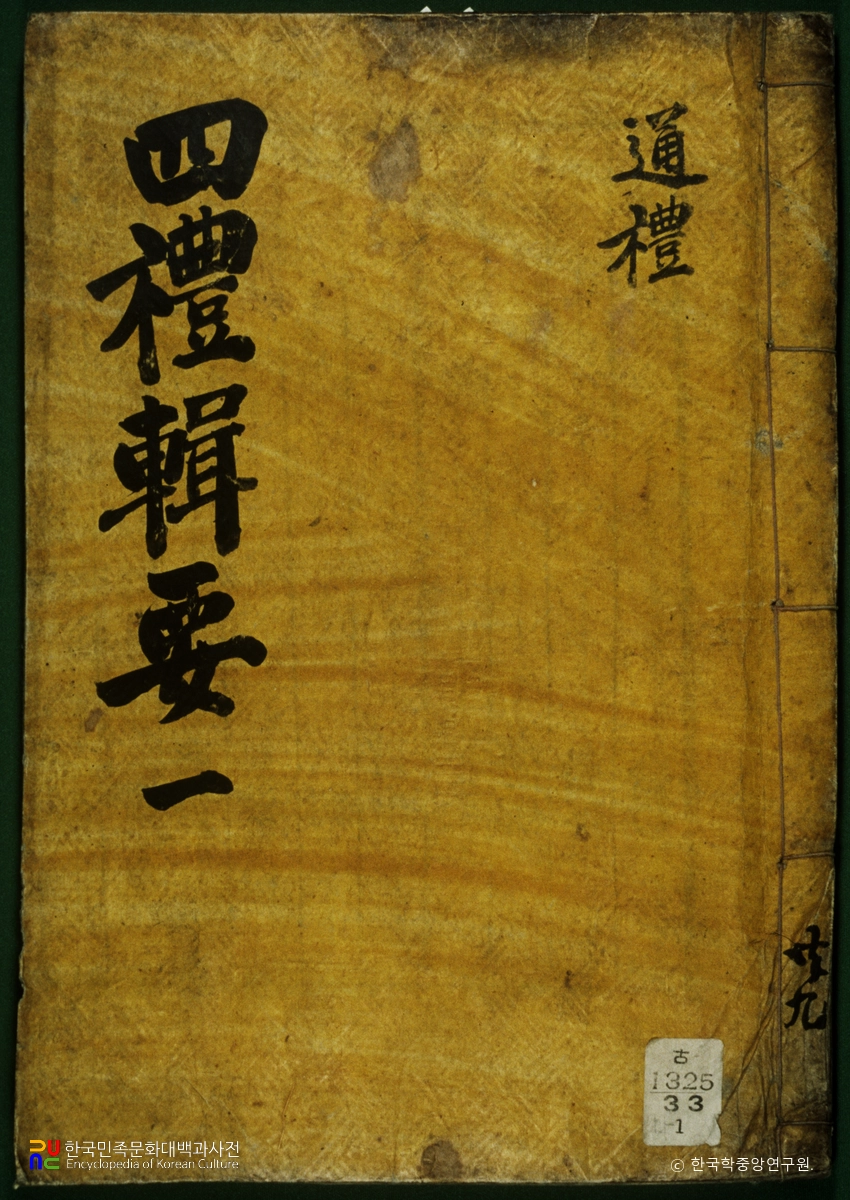 四禮輯要 一
通禮
共九
古
1325
33
-1
한국민족문화대백과사전
Encyclopedia of Korean Culture
© 한국학중앙연구원.